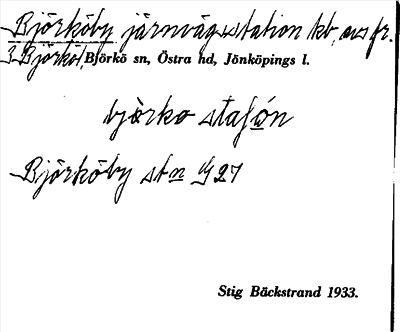 Björköby järnvägsstation kb, avs fr.
3 Björkö, Björkö sn, Östra hd, Jönköpings l.
bjòrko stasón
Björköby stn G27
Stig Bäckstrand 1933.